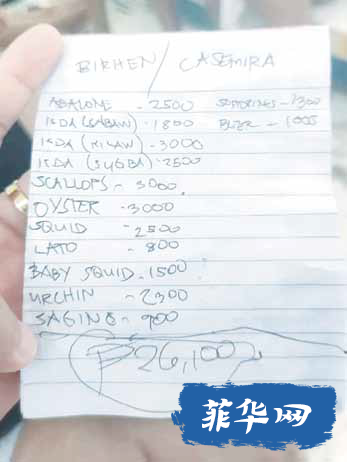 BIRHEN / CASEMIRA
ABALONE - 2500
ISDA (SABAW) - 1800
ISDA (KILAW) - 3000
ISDA (SUGBA) - 2500
SCALLOPS - 3000
OYSTER - 3000
SQUID - 2500
LATO - 800
BABY SQUID - 1500
URCHIN - 2300
SAGING - 900
SOFTDRINKS - 1300
- 1000
₱26,100
菲华网